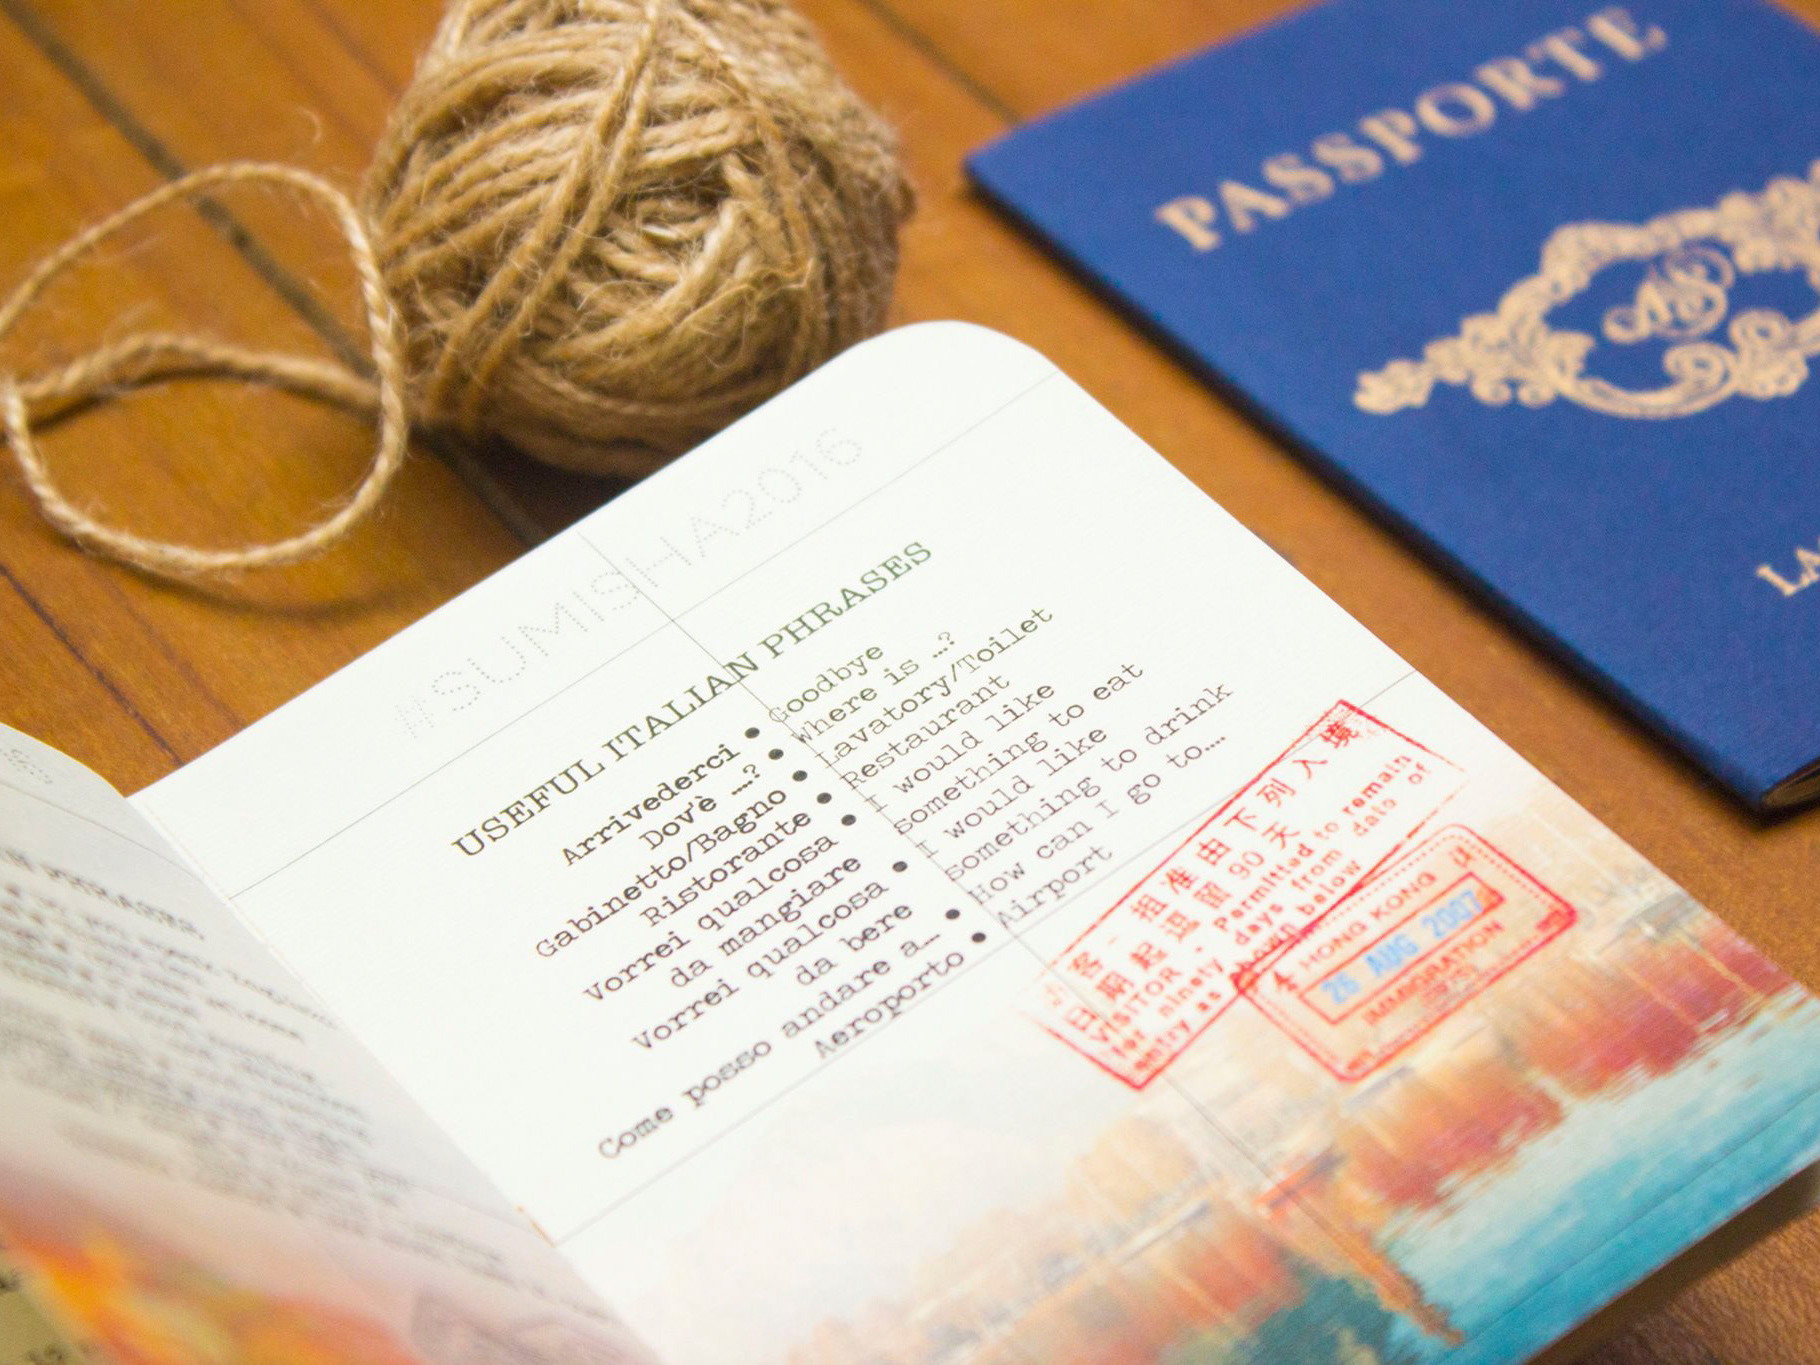 PASSPORTE
#SUMISHA2016
USEFUL ITALIAN PHRASES
Arrivederci • Goodbye
Dov'è ....? • Where is ...?
Gabinetto/Bagno • Lavatory/Toilet
Ristorante • Restaurant
Vorrei qualcosa • I would like
da mangiare something to eat
Vorrei qualcosa • I would like
da bere something to drink
Come posso andare a… • How can I go to....
Aeroporto • Airport
客 准由下列入境
日期起逗留 90 天
VISITOR - Permitted to remain
for ninety days from date of
entry as shown below
HONG KONG
26 AUG 2007
IMMIGRATION